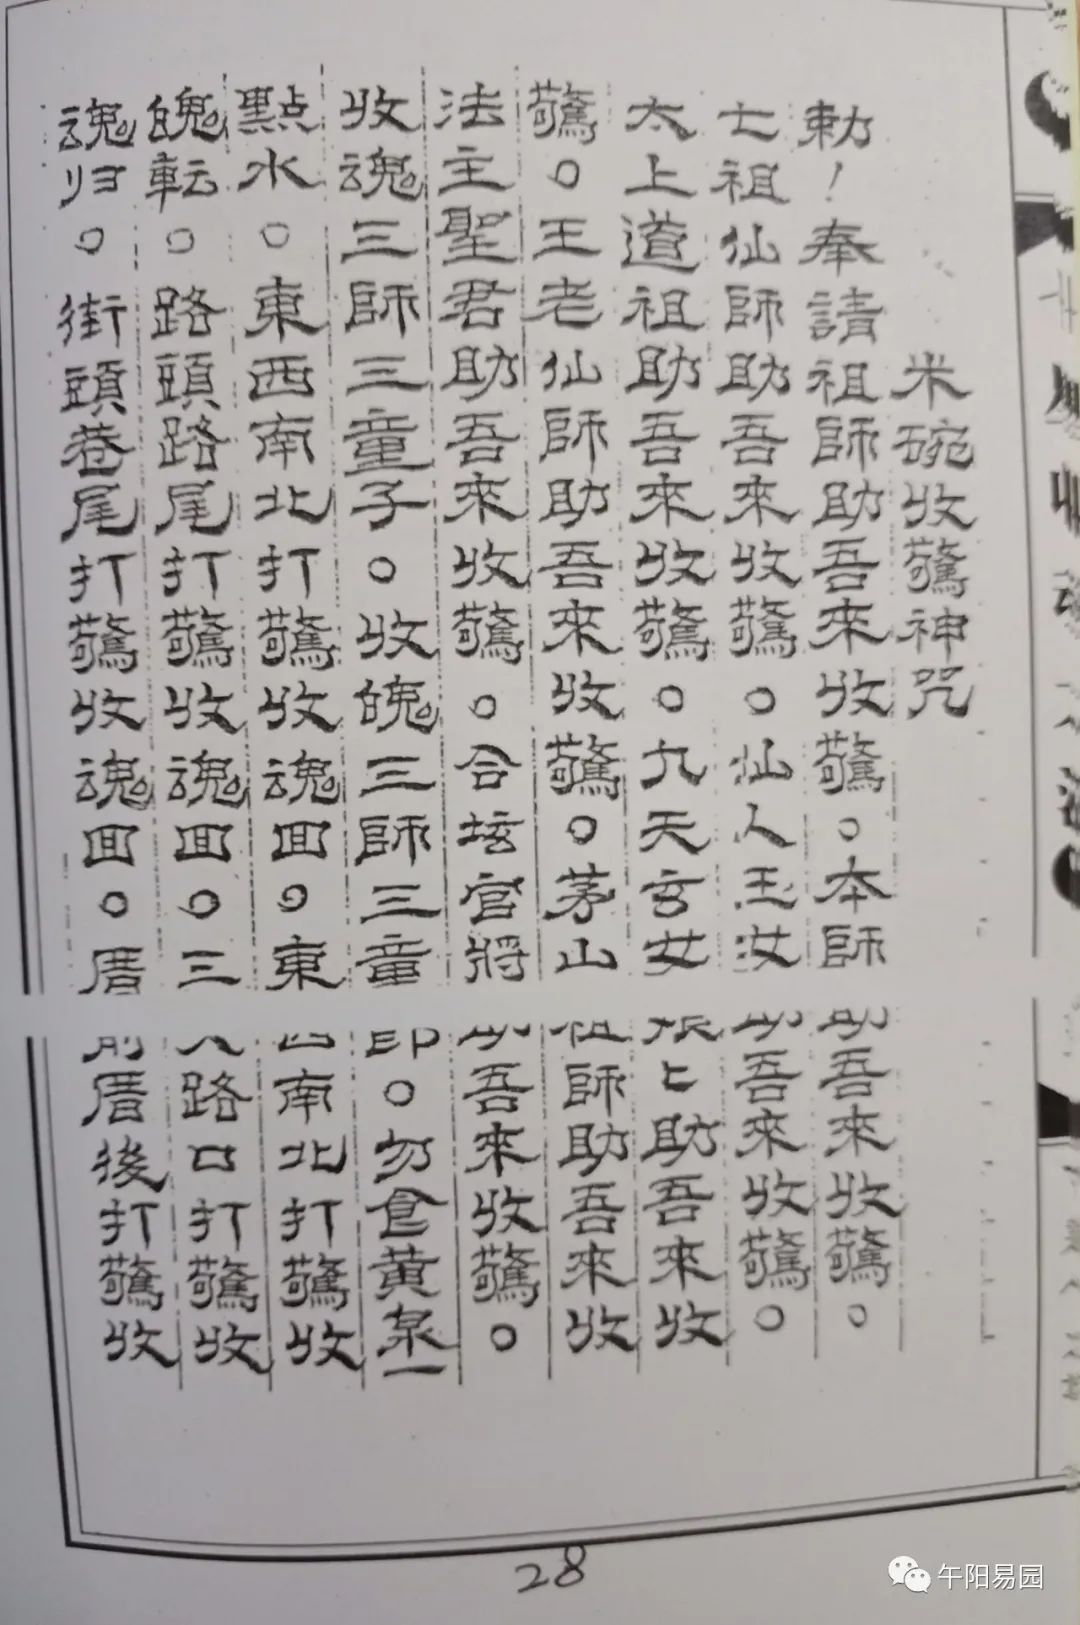 米碗收驚神咒
勅！奉請祖師助吾來收驚。本師助吾來收驚。
七祖仙師助吾來收驚。仙人玉女助吾來收驚。
太上道祖助吾來收驚。九天玄女 助吾來收
驚。王老仙師助吾來收驚。茅山祖師助吾來收
法主聖君助吾來收驚。合坛官將助吾來收驚。
收魂三師三童子。收魄三師三童 。勿食黄泉一
點水。東西南北打驚收魂回。東西南北打驚收
魄転。路頭路尾打驚收魂回。三 路口打驚收
魂归。街頭巷尾打驚收魂回。厝前厝後打驚收
28
午阳易园